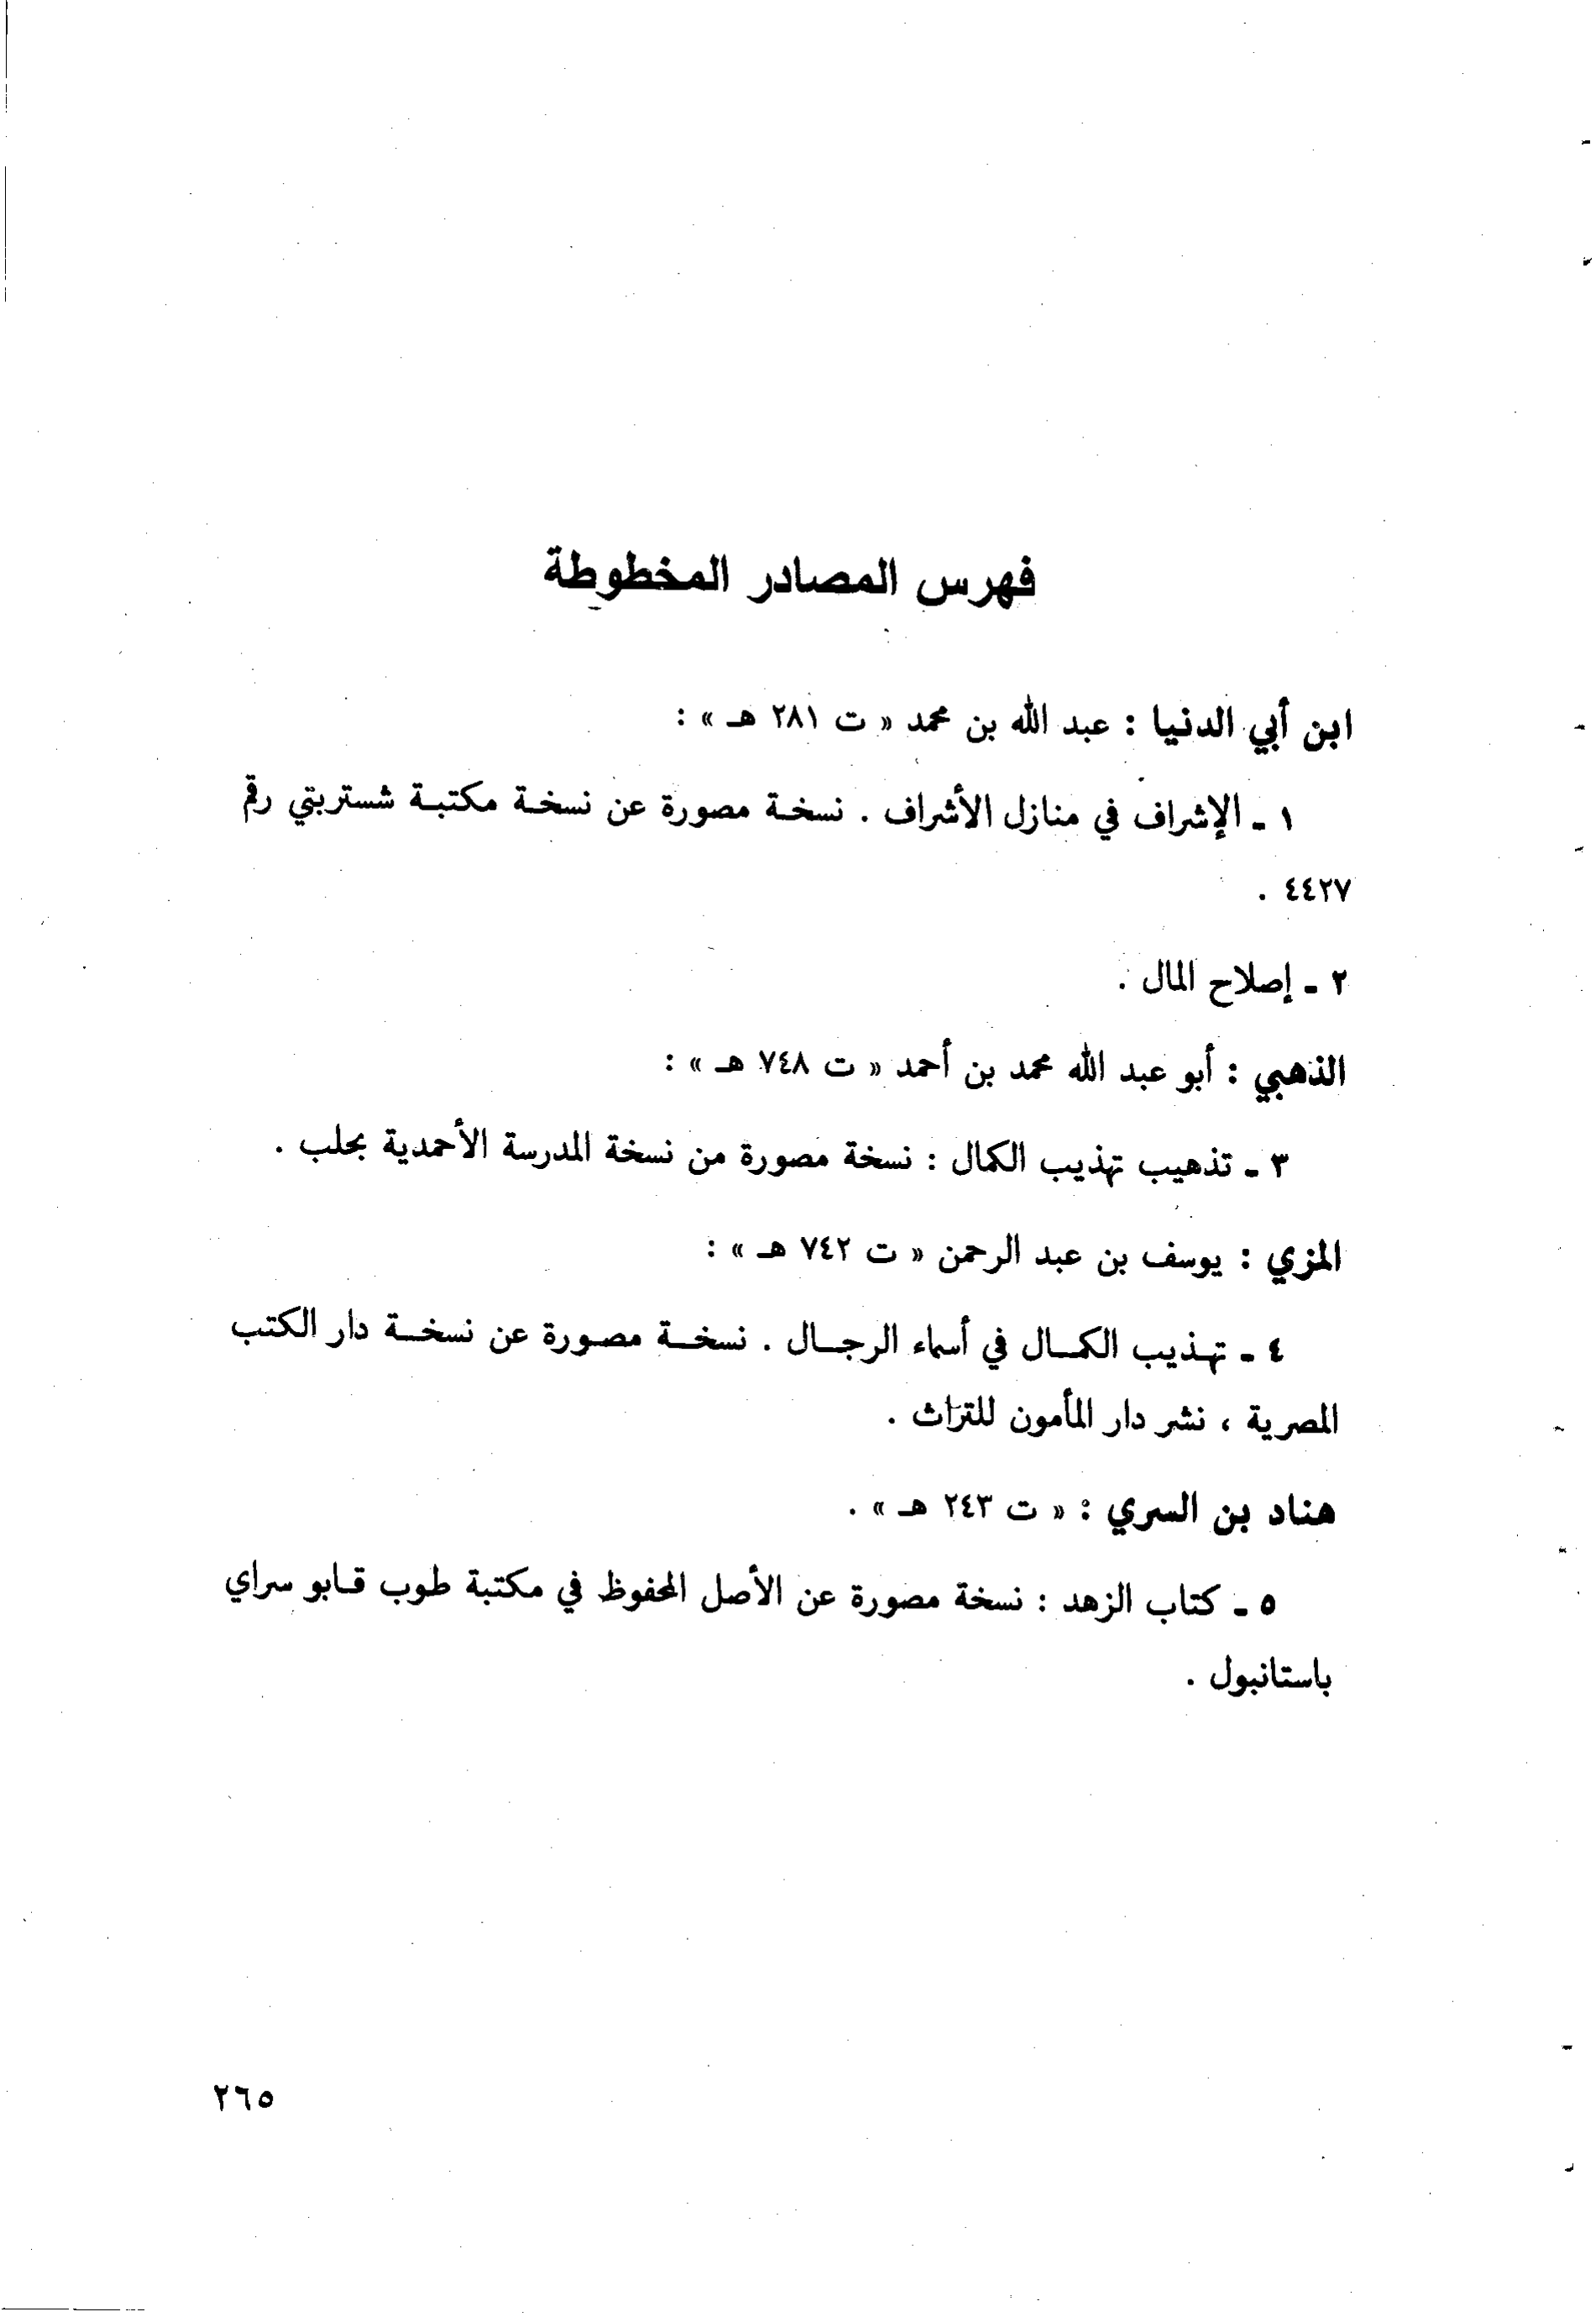 فهرس المصادر المخطوطة
ابن أبي الدنيا : عبد الله بن محمد « ت ٢٨١ هـ » :
١ - الإشراف في منازل الأشراف . نسخة مصورة عن نسخة مكتبة شستربتي رقم
٤٤٢٧ .
٢ - إصلاح المال .
الذهبي : أبو عبد الله محمد بن أحمد « ت ٧٤٨ هـ » :
٣ - تذهيب تهذيب الكمال : نسخة مصورة من نسخة المدرسة الأحمدية بحلب .
المزي : يوسف بن عبد الرحمن « ت ٧٤٢ هـ » :
٤ - تهذيب الكمال في أسماء الرجال . نسخة مصورة عن نسخة دار الكتب
المصرية ، نشر دار المأمون للتراث .
هناد بن السري : « ت ٢٤٣ هـ » .
٥ - كتاب الزهد : نسخة مصورة عن الأصل المحفوظ في مكتبة طوب قابو سراي
باستانبول .
٢٦٥